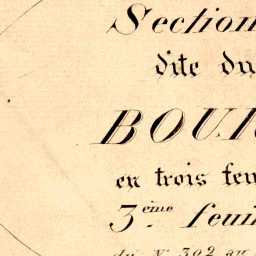 Section
dite du
BOUR
en trois feu
3ème feuil
du N° 302 au